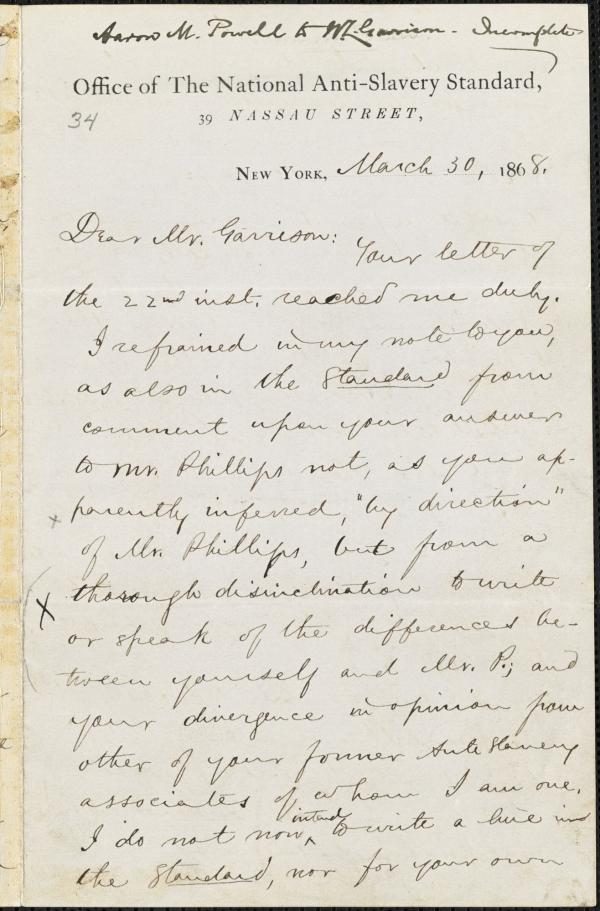 Aaron M. Powell to WL Garrison - Incomplete
Office of The National Anti-Slavery Standard,
34
39 NASSAU STREET,
NEW YORK, March 30, 1868.
Dear Mr. Garrison:
Your letter of
the 22nd inst. reached me duly.
I refrained in my note to you,
as also in the Standard from
comment upon your answer
to Mr. Phillips not, as you ap-
x parently inferred, "by direction"
of Mr. Phillips, but from a
X thorough disinclination to write
or speak of the differences be-
tween yourself and Mr. P.; and
your divergence in opinion from
other of your former Anti Slavery
associates of whom I am one.
I do not now intend to write a line in
the Standard, nor for your own